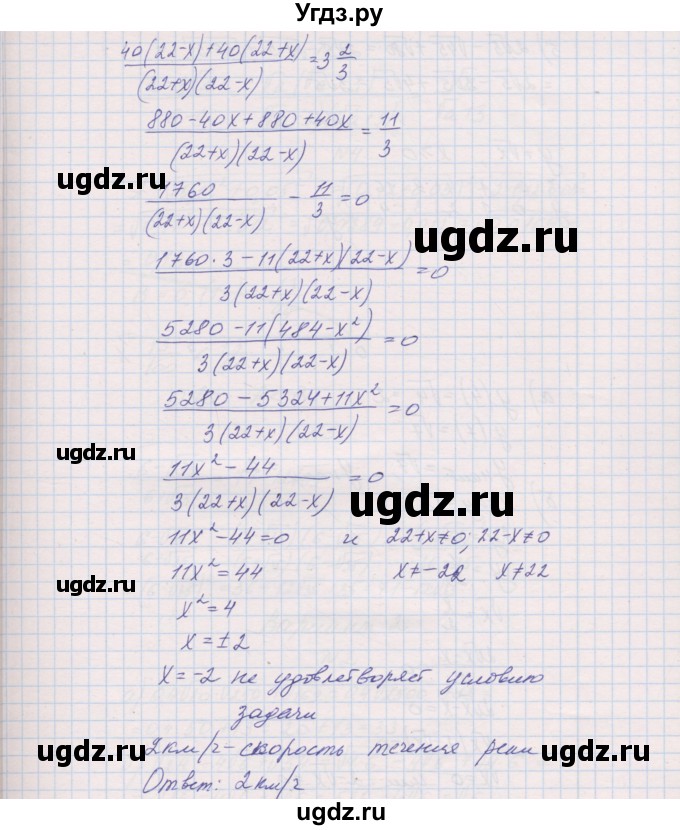 Угдз.ру
(40(22-x)+40(22+x))/((22+x)(22-x)) = 3 2/3
(880-40x+880+40x)/((22+x)(22-x)) = 11/3
ugdz.ru
1760/((22+x)(22-x)) - 11/3 = 0
ugdz.ru
(1760·3-11(22+x)(22-x))/(3(22+x)(22-x)) = 0
(5280-11(484-x²))/(3(22+x)(22-x)) = 0
ugdz.ru
(5280-5324+11x²)/(3(22+x)(22-x)) = 0
ugdz.ru
(11x²-44)/(3(22+x)(22-x)) = 0
ugdz.ru
11x²-44=0 и 22+x≠0; 22-x≠0
11x²=44 x≠-22 x≠22
ugdz.ru
x²=4
x=±2
x=-2 не удовлетворяет условию
задачи
ugdz.ru
2км/ч-скорость течения реки
ugdz.ru
Ответ: 2км/ч
ugdz.ru